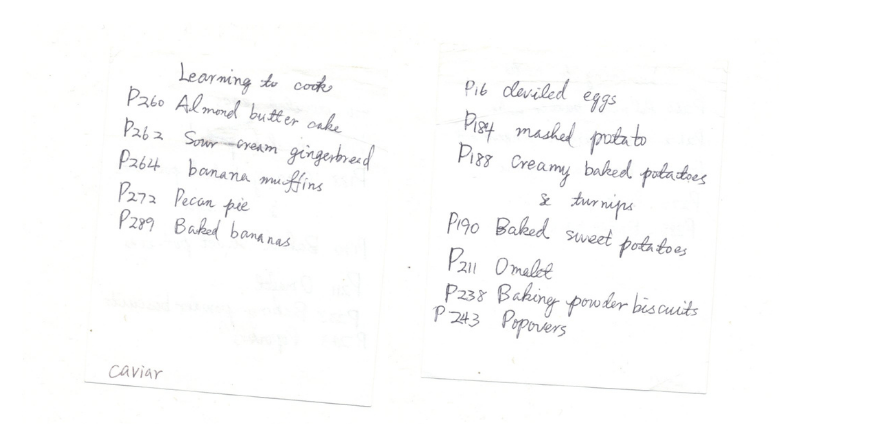 Learning to cook
P260 Almond butter cake
P262 Sour cream gingerbread
P264 banana muffins
P272 Pecan pie
P289 Baked bananas
caviar
P16 deviled eggs
P184 mashed potato
P188 creamy baked potatoes
& turnips
P190 Baked sweet potatoes
P211 Omelet
P238 Baking powder biscuits
P243 Popovers